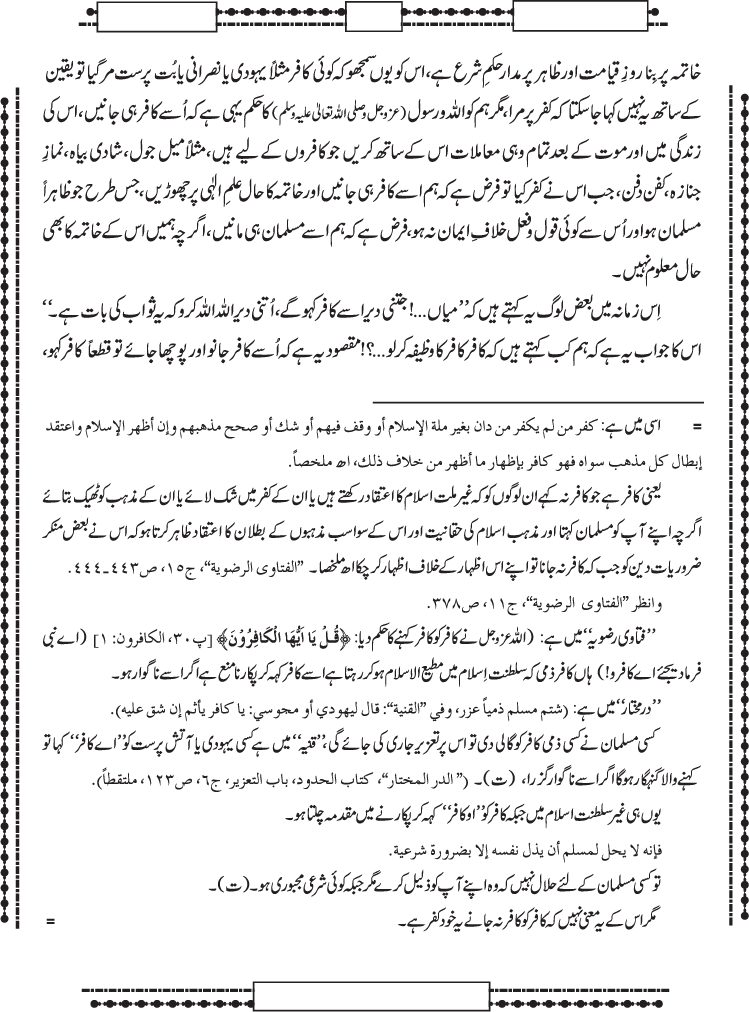 خاتمہ پر بِنا روزِ قیامت اور ظاہر پر مدار حکمِ شرع ہے، اس کو یوں سمجھو کہ کوئی کافر مثلاً یہودی یا نصرانی یا بُت پرست مرگیا تو یقین
کے ساتھ یہ نہیں کہا جاسکتا کہ کفر پر مرا، مگر ہم کو اللہ و رسول (عزوجل وصلی اللہ تعالیٰ علیہ وسلم) کا حکم یہی ہے کہ اُسے کافر ہی جانیں، اس کی
زندگی میں اور موت کے بعد تمام وہی معاملات اس کے ساتھ کریں جو کافروں کے لیے ہیں، مثلاً میل جول، شادی بیاہ، نمازِ
جنازہ، کفن دفن، جب اس نے کفر کیا تو فرض ہے کہ ہم اسے کافر ہی جانیں اور خاتمہ کا حال علمِ الٰہی پر چھوڑیں، جس طرح جو ظاہراً
مسلمان ہو اور اُس سے کوئی قول و فعل خلافِ ایمان نہ ہو، فرض ہے کہ ہم اسے مسلمان ہی مانیں، اگرچہ ہمیں اس کے خاتمہ کا بھی
حال معلوم نہیں۔
اِس زمانہ میں بعض لوگ یہ کہتے ہیں کہ ’’میاں...! جتنی دیر اسے کافر کہو گے، اُتنی دیر اللہ اللہ کرو کہ یہ ثواب کی بات ہے۔‘‘
اس کا جواب یہ ہے کہ ہم کب کہتے ہیں کہ کافر کافر کا وظیفہ کرلو...؟! مقصود یہ ہے کہ اُسے کافر جانو اور پوچھا جائے تو قطعاً کافر کہو،
= اسی میں ہے: كفر من لم يكفر من دان بغير ملة الإسلام أو وقف فيهم أو شك أو صحح مذهبهم وإن أظهر الإسلام واعتقد
إبطال كل مذهب سواه فهو كافر بإظهار ما أظهر من خلاف ذلك، اھ ملخصاً.
یعنی کافر ہے جو کافر نہ کہے ان لوگوں کو کہ غیر ملت اسلام کا اعتقاد رکھتے ہیں یا ان کے کفر میں شک لائے یا ان کے مذہب کو ٹھیک بتائے
اگرچہ اپنے آپ کو مسلمان کہتا اور مذہب اسلام کی حقانیت اور اس کے سوا سب مذہبوں کے بطلان کا اعتقاد ظاہر کرتا ہو کہ اس نے بعض منکر
ضروریات دین کو جب کہ کافر نہ جانا تو اپنے اس اظہار کے خلاف اظہار کرچکا اھ ملخصا۔ ”الفتاوی الرضوية“، ج١٥، ص٤٤٣-٤٤٤.
وانظر ”الفتاوی الرضوية“، ج١١، ص٣٧٨.
’’فتاوی رضویہ‘‘ میں ہے: (اللہ عزوجل نے کافر کو کافر کہنے کا حکم دیا: ﴿قُلْ يَا اَيُّهَا الْكَافِرُوْنَ﴾ [پ٣٠، الكافرون: ١] (اے نبی
فرمادیجئے اے کافرو!) ہاں کافر ذمی کہ سلطنت اِسلام میں مطیع الاسلام ہو کر رہتا ہے اسے کافر کہہ کر پکارنا منع ہے اگر اسے ناگوار ہو۔
’’درمختار‘‘ میں ہے: (شتم مسلم ذمياً عزر، وفي ”القنية“: قال ليهودي أو مجوسي: يا كافر يأثم إن شق عليه).
کسی مسلمان نے کسی ذمی کافر کو گالی دی تو اس پر تعزیر جاری کی جائے گی، ’’قنیہ‘‘ میں ہے کسی یہودی یا آتش پرست کو ’’اے کافر‘‘ کہا تو
کہنے والا گنہگار ہوگا اگر اسے ناگوار گزرا، (ت)۔ (” الدر المختار“، كتاب الحدود، باب التعزير، ج٦، ص١٢٣، ملتقطاً).
یوں ہی غیر سلطنت اسلام میں جبکہ کافر کو ’’او کافر‘‘ کہہ کر پکارنے میں مقدمہ چلتا ہو۔
فإنه لا يحل لمسلم أن يذل نفسه إلا بضرورة شرعية.
تو کسی مسلمان کے لئے حلال نہیں کہ وہ اپنے آپ کو ذلیل کرے مگر جبکہ کوئی شرعی مجبوری ہو۔ (ت)۔
مگر اس کے یہ معنی نہیں کہ کافر کو کافر نہ جانے یہ خود کفر ہے۔ =